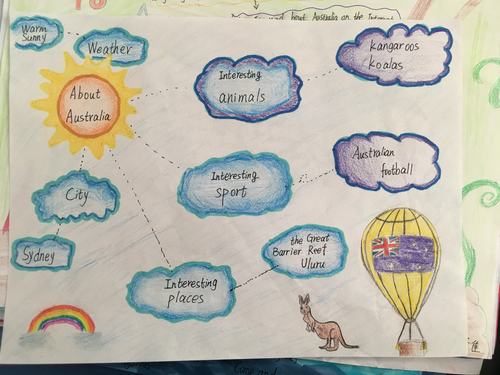 bout Australia on the Internet
Warm
Sunny
Weather
About
Australia
Interesting
animals
kangaroos
koalas
Interesting
sport
Australian
football
City
Sydney
Interesting
places
the Great
Barrier Reef
Uluru